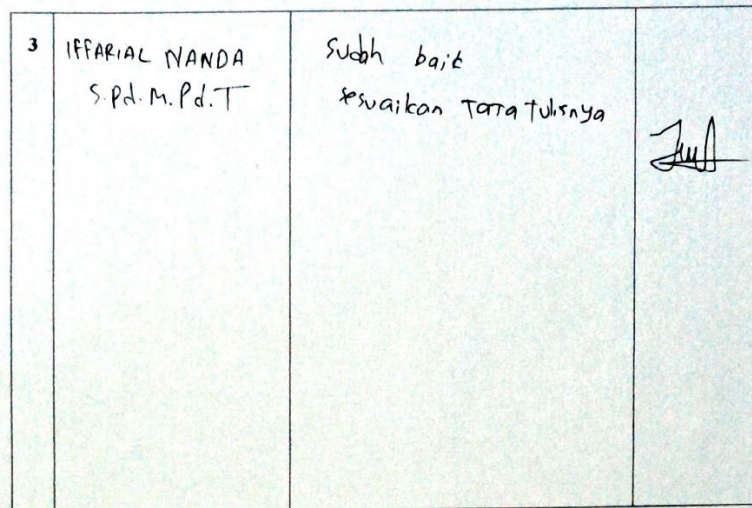 3
IFFARIAL NANDA
S.Pd.M.Pd.T
Sudah baik
sesuaikan Tata Tulisnya